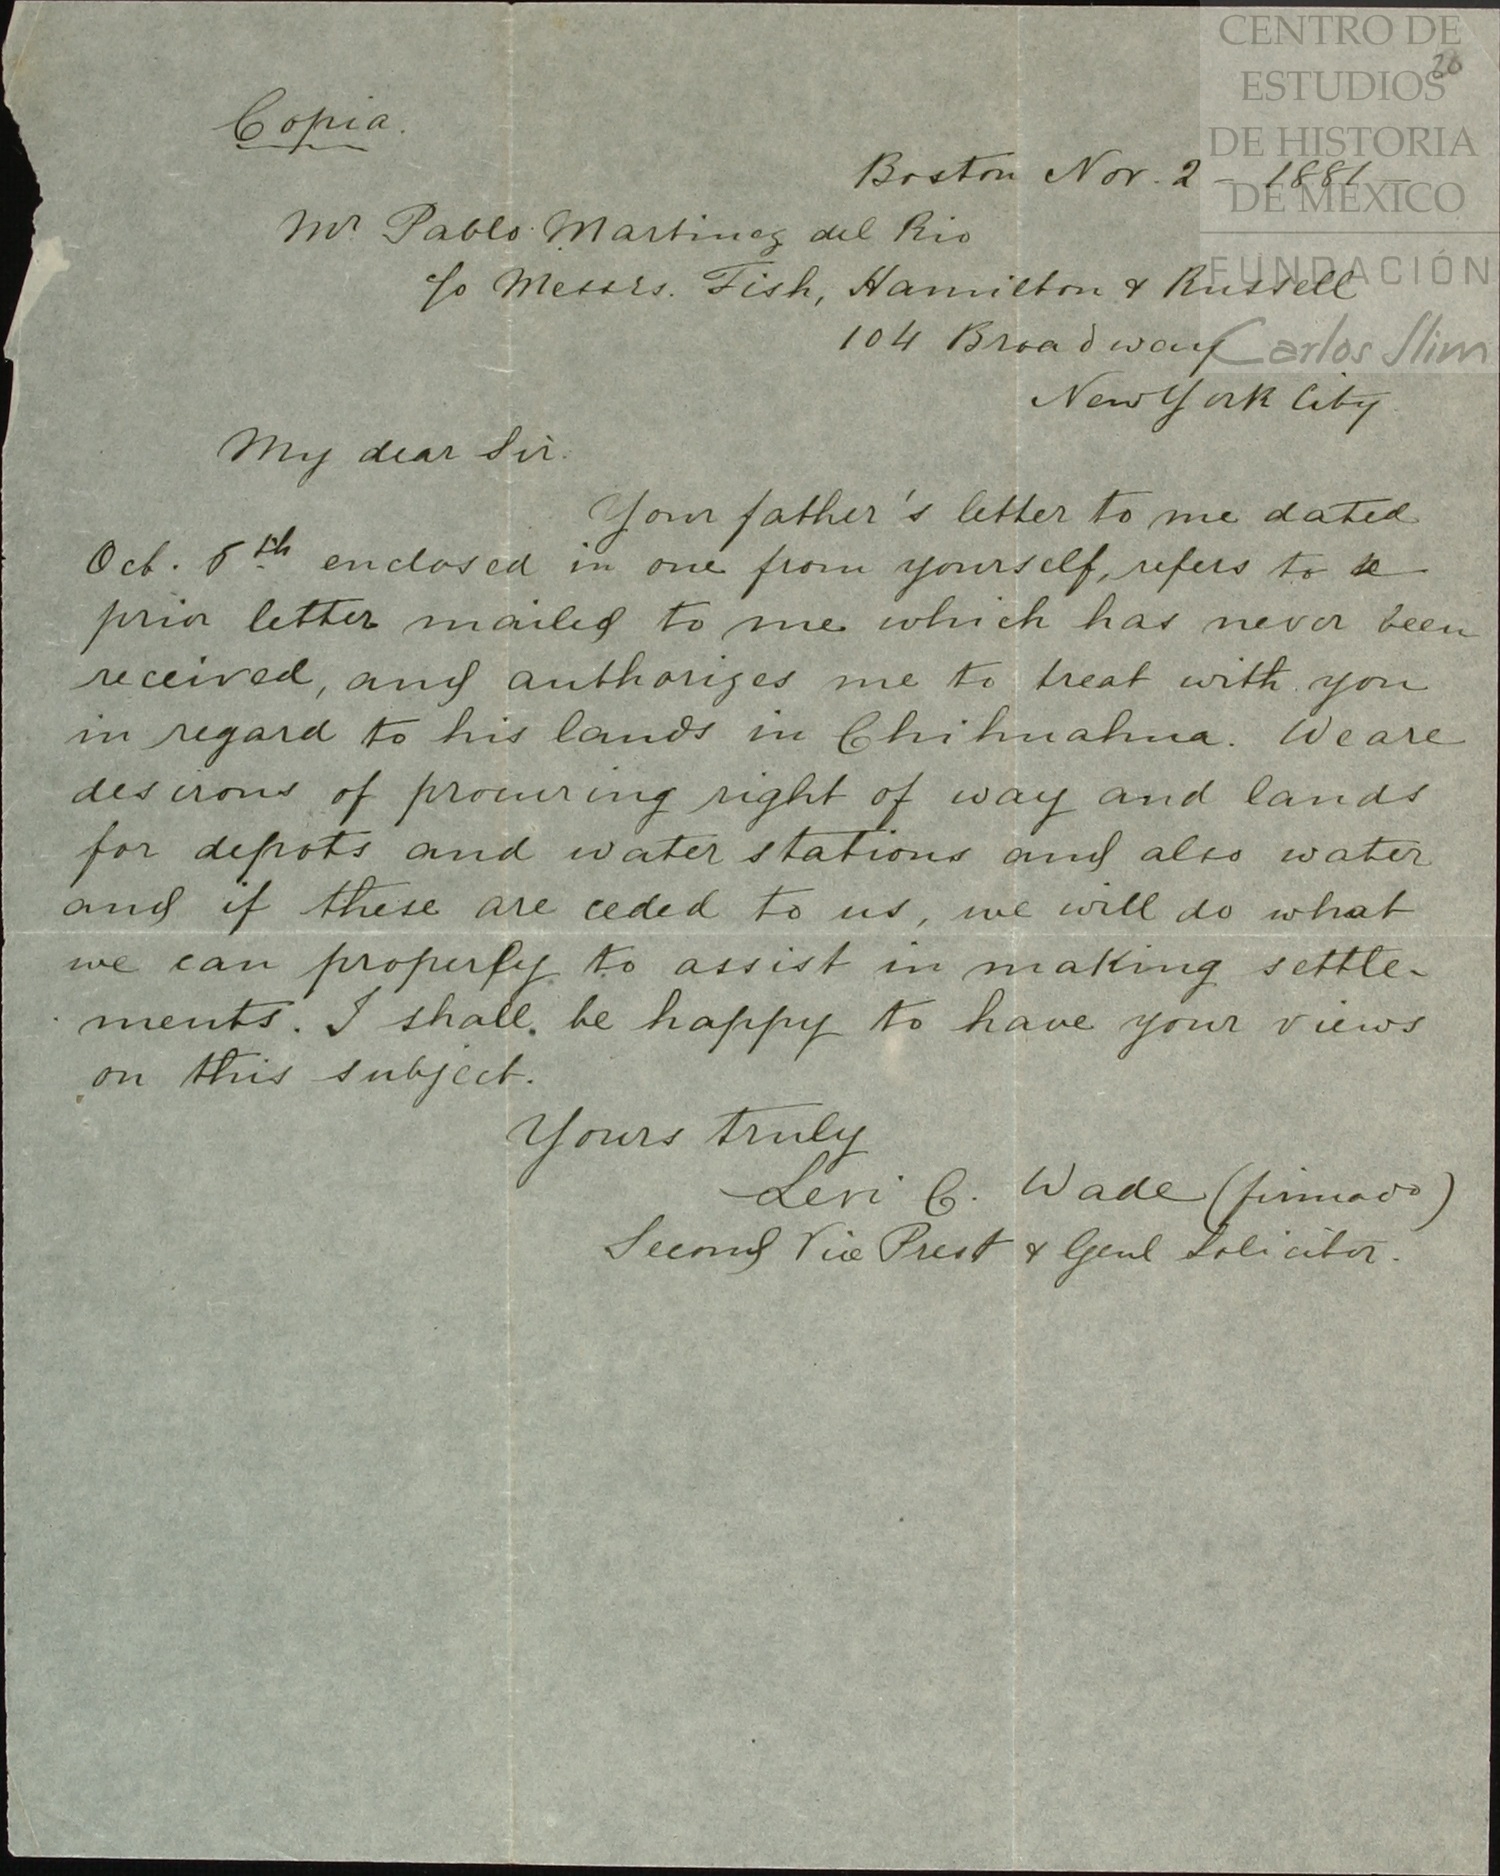 CENTRO DE
ESTUDIOS
DE HISTORIA
DE MÉXICO
FUNDACIÓN
Carlos Slim
26
Copia.
Boston Nov. 2 – 1881 –
Mr. Pablo Martinez del Rio
c/o Messrs. Fish, Hamilton & Russell
104 Broadway
New York City
My dear Sir.
Your father's letter to me dated
Oct. 5th enclosed in one from yourself, refers to a
prior letter mailed to me which has never been
received, and authorizes me to treat with you
in regard to his lands in Chihuahua. We are
desirous of procuring right of way and lands
for depots and water stations and also water
and if these are ceded to us, we will do what
we can properly to assist in making settle-
ments. I shall be happy to have your views
on this subject.
Yours truly
Levi C. Wade (firmado)
Second Vice Prest & Genl Solicitor.